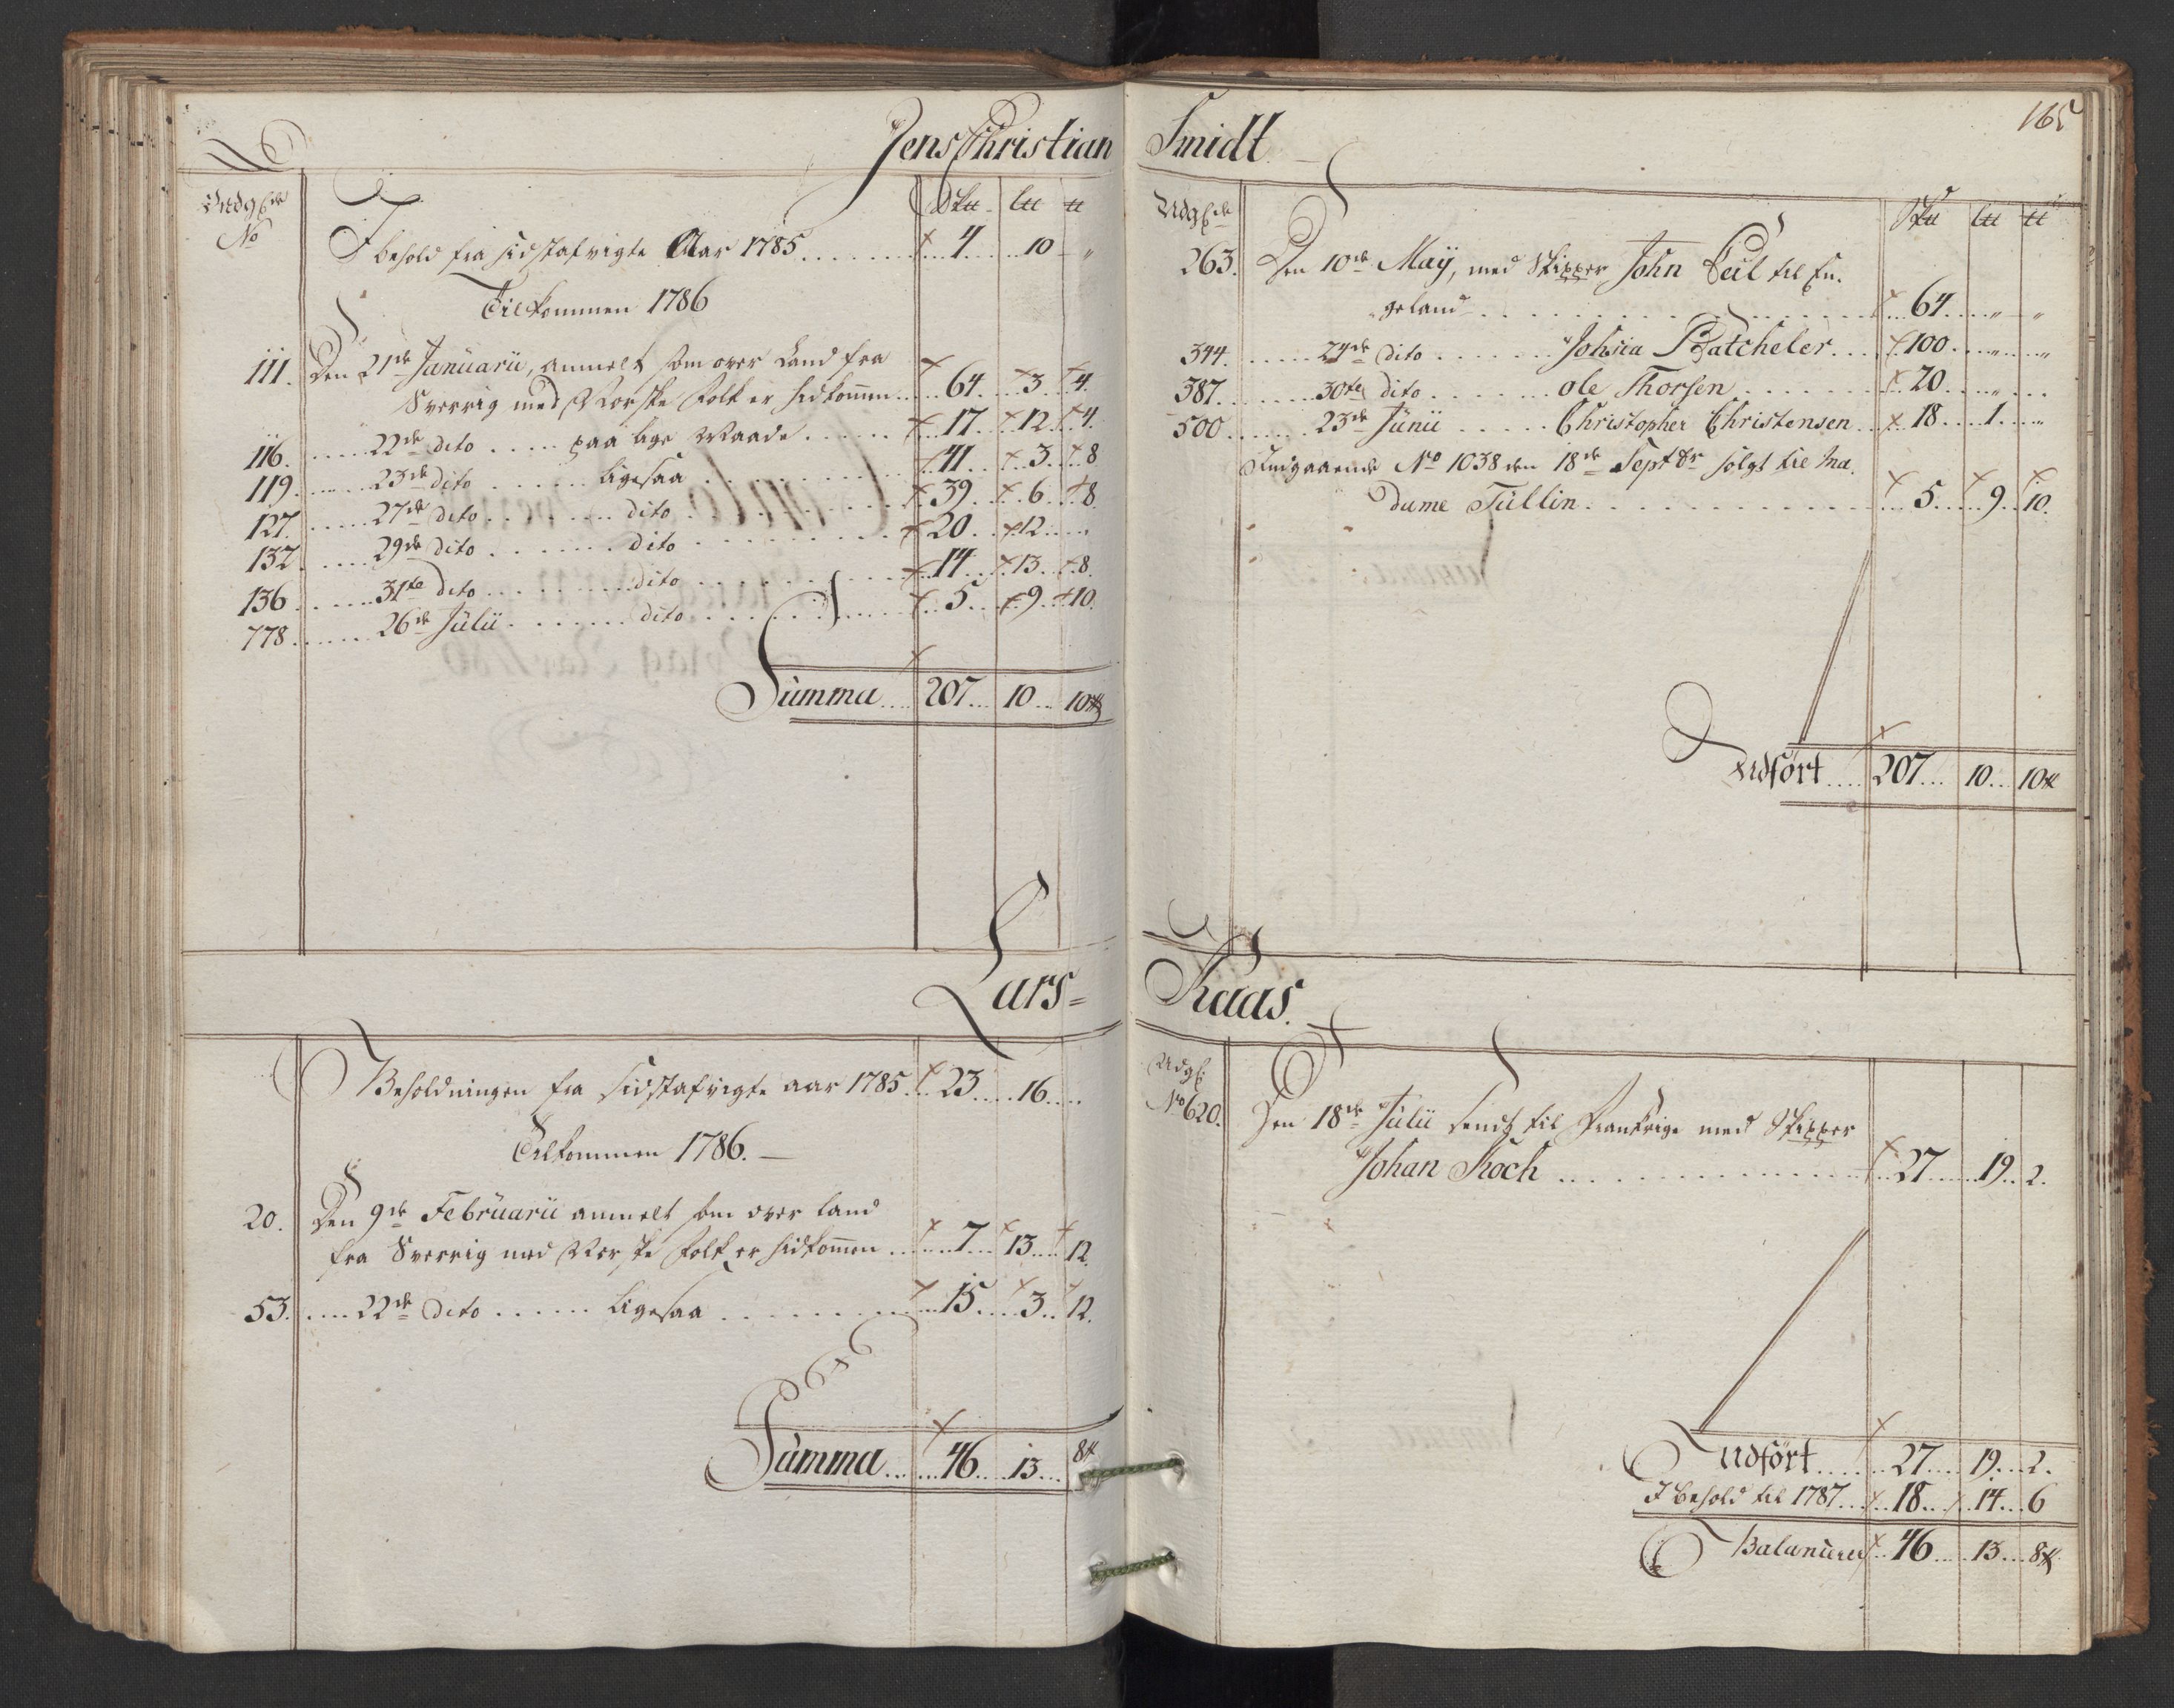 Jens Christian
Indg:de
No
Sk℔ L℔ ℔
I behold fra sidstafvigte Aar 1785 4 10 "
Tilkommen 1786
111. Den 21de Januarii, anmelt som over Land fra
Sverrig med Norske Folk er hidkom̅en 64. 3. 4.
116. 22de dito paa lige Maade 17. 12. 4.
119. 23de dito ligesaa 41. 3. 8
127. 27de dito dito 39. 6. 8.
132. 29de dito dito 20. 12. "
136 31te dito dito 14. 13. 8.
778. 26de Julii dito 5. 9. 10.
Summa 207 10 10℔
Lars=
Beholdningen fra sidstafvigte aar 1785. 23 16
Tilkommen 1786.
20. Den 9de Februarii anmelt som over land
fra Sverrig med Norske Folk er hidkom̅en 7 13 12.
53. 22de dito ligesaa 15 3 12.
Summa 46 13 8℔
165
Smidt
Udg:de
Sk℔ L℔ ℔
263. Den 10de Maÿ, med Skipper John Ceil til En-
geland 64 " "
344. 24de dito Johsia Batcheler 100 " "
387. 30te dito Ole Thorsen 20 "
500 23de Junii Christopher Christensen 18 1 "
Indgaaende No 1038 den 18de Septbr solgt til Ma-
dame Tullin 5 9 10.
Udfört 207 10 10℔
Kaas.
Udg:
No 620. Den 18de Julii sendt til Frankrige med Skipper
Johan Koch 27 19 2.
Udfört 27 19 2.
I behold til 1787 18 14 6
Balancerer 46 13 8℔